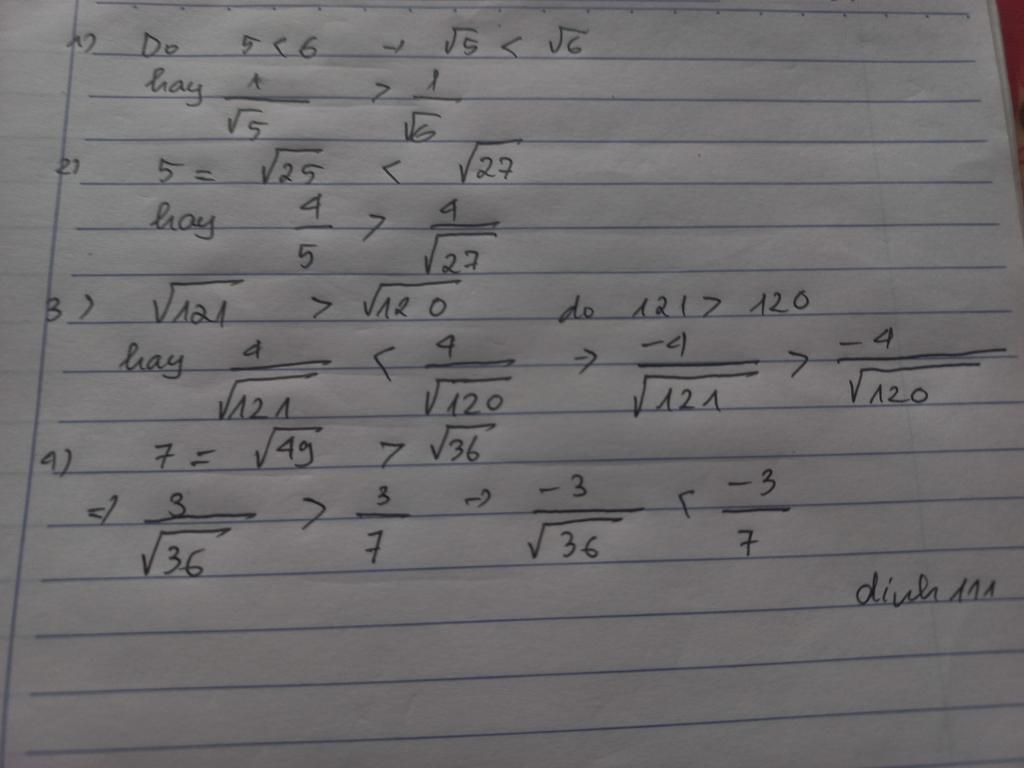 1) Do 5 < 6 → √5 < √6
hay 1/√5 > 1/√6
2) 5 = √25 < √27
hay 4/5 > 4/√27
3) √121 > √120 do 121 > 120
hay 4/√121 < 4/√120 → -4/√121 > -4/√120
4) 7 = √49 > √36
=> 3/√36 > 3/7 → -3/√36 < -3/7
dinh111